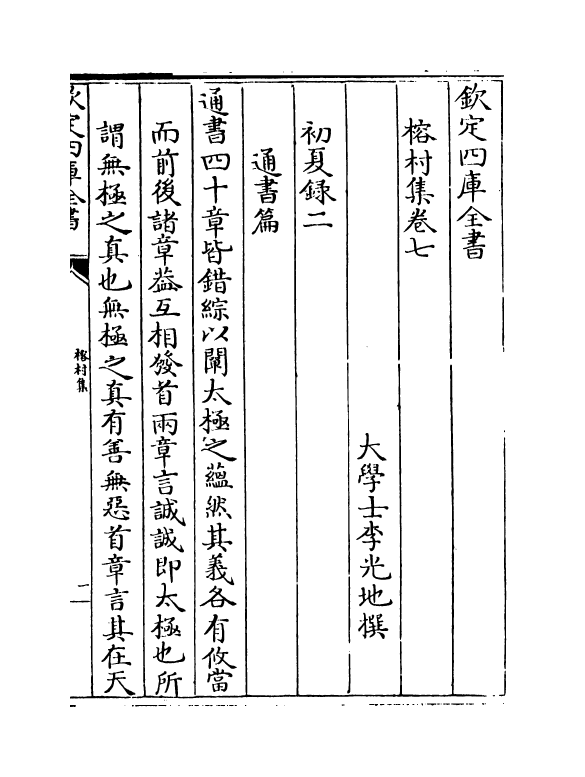 欽定四庫全書
榕村集卷七
大學士李光地撰
初夏録二
通書篇
通書四十章皆錯綜以闡太極之蘊然其義各有攸當
而前後諸章葢互相發首兩章言誠誠即太極也所
謂無極之真也無極之真有善無惡首章言其在天
欽定四庫全書
榕村集
一